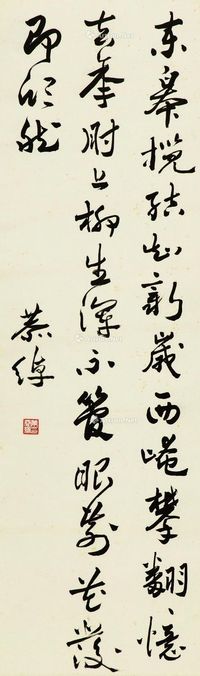 東皋攬結知新歲西崦攀翻憶
去年肘上柳生渾不管眼前花發
即欣然